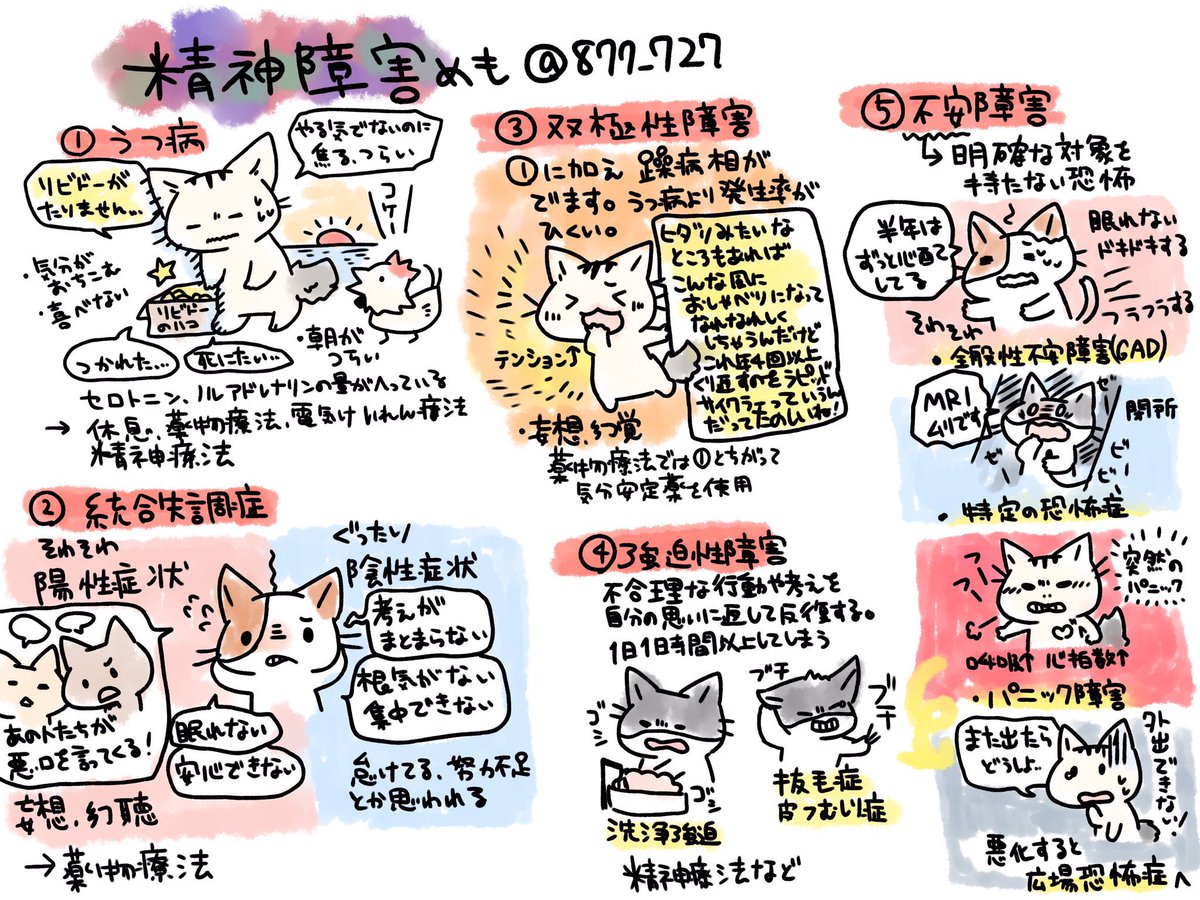 精神障害めも @877_727
① うつ病
やる気でないのに
焦る、つらい
リビドーが
たりません…
コケー
・気分が
おちこむ
・喜べない
リビドー
のハコ
つかれた…
死にたい…
・朝が
つらい
セロトニン、ノルアドレナリンの量がへっている
→ 休息、薬物療法、電気けいれん療法
精神療法
② 統合失調症
それそれ
陽性症状
あの人たちが
悪口を言ってくる!
妄想、幻聴
→ 薬物療法
眠れない
安心できない
ぐったり
陰性症状
考えが
まとまらない
根気がない
集中できない
怠けてる、努力不足
とか思われる
③ 双極性障害
①に加え 躁病相が
でます。うつ病より発生率が
ひくい。
テンション↑
ヒダリみたいな
ところもあれば
こんな風に
おしゃべりになって
なれなれしく
しちゃうんだけど
これ年4回以上
くり返すのをラピッド
サイクラーっていうん
だってたのしいね!
・妄想、幻覚
薬物療法では①とちがって
気分安定薬を使用
④ 強迫性障害
不合理な行動や考えを
自分の思いに返して反復する。
1日1時間以上してしまう
ゴシ
ゴシ
洗浄強迫
ブチ
ブチ
抜毛症
皮フむしり症
精神療法など
⑤ 不安障害
↳ 明確な対象を
持たない恐怖
半年は
ずっと心配し
てる
眠れない
ドキドキする
フラフラする
それそれ
・全般性不安障害(GAD)
MRI
ムリです
閉所
・特定の恐怖症
フー
フー
突然の
パニック
呼吸↑ 心拍数↑
・パニック障害
また出たら
どうしよ…
外出できない…!
悪化すると
広場恐怖症へ